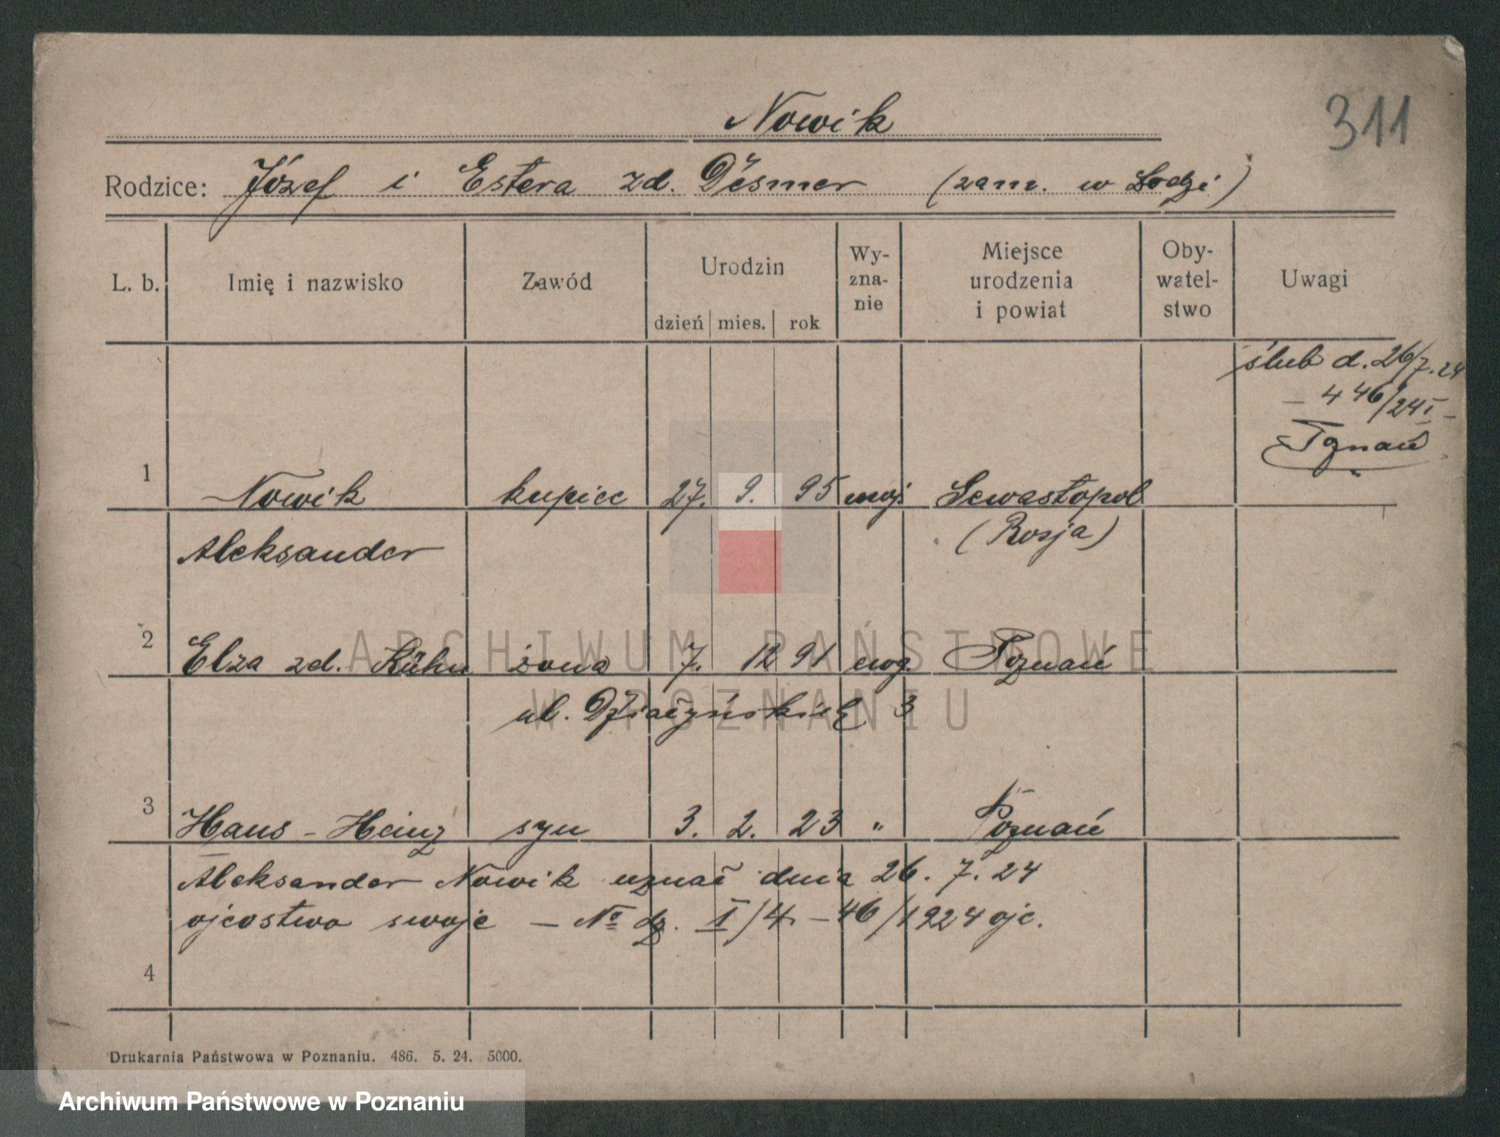 311
Nowik
Rodzice: Józef i Estera zd. (zam. w Łodzi)
L. b. Imię i nazwisko Zawód Urodzin dzień mies. rok Wy-zna-nie Miejsce urodzenia i powiat Oby-watel-stwo Uwagi
ślub d. 26/7.24
– 446/24 I –
Poznań
1 Nowik kupiec 27. 9. 95 mojż Sewastopol
Aleksander (Rosja)
2 Elza zd. Kühn żona 7. 12 91 ewg. Poznań
ul. Działyńskich 3
3 Hans - Heinz syn 3. 2. 23 " Poznań
Aleksander Nowik uznał dnia 26. 7. 24
ojcostwo swoje – No dz. I/4 – 46/1924 ojc.
4
Drukarnia Państwowa w Poznaniu. 486. 5. 24. 5000.
ARCHIWUM PAŃSTWOWE
W POZNANIU
Archiwum Państwowe w Poznaniu